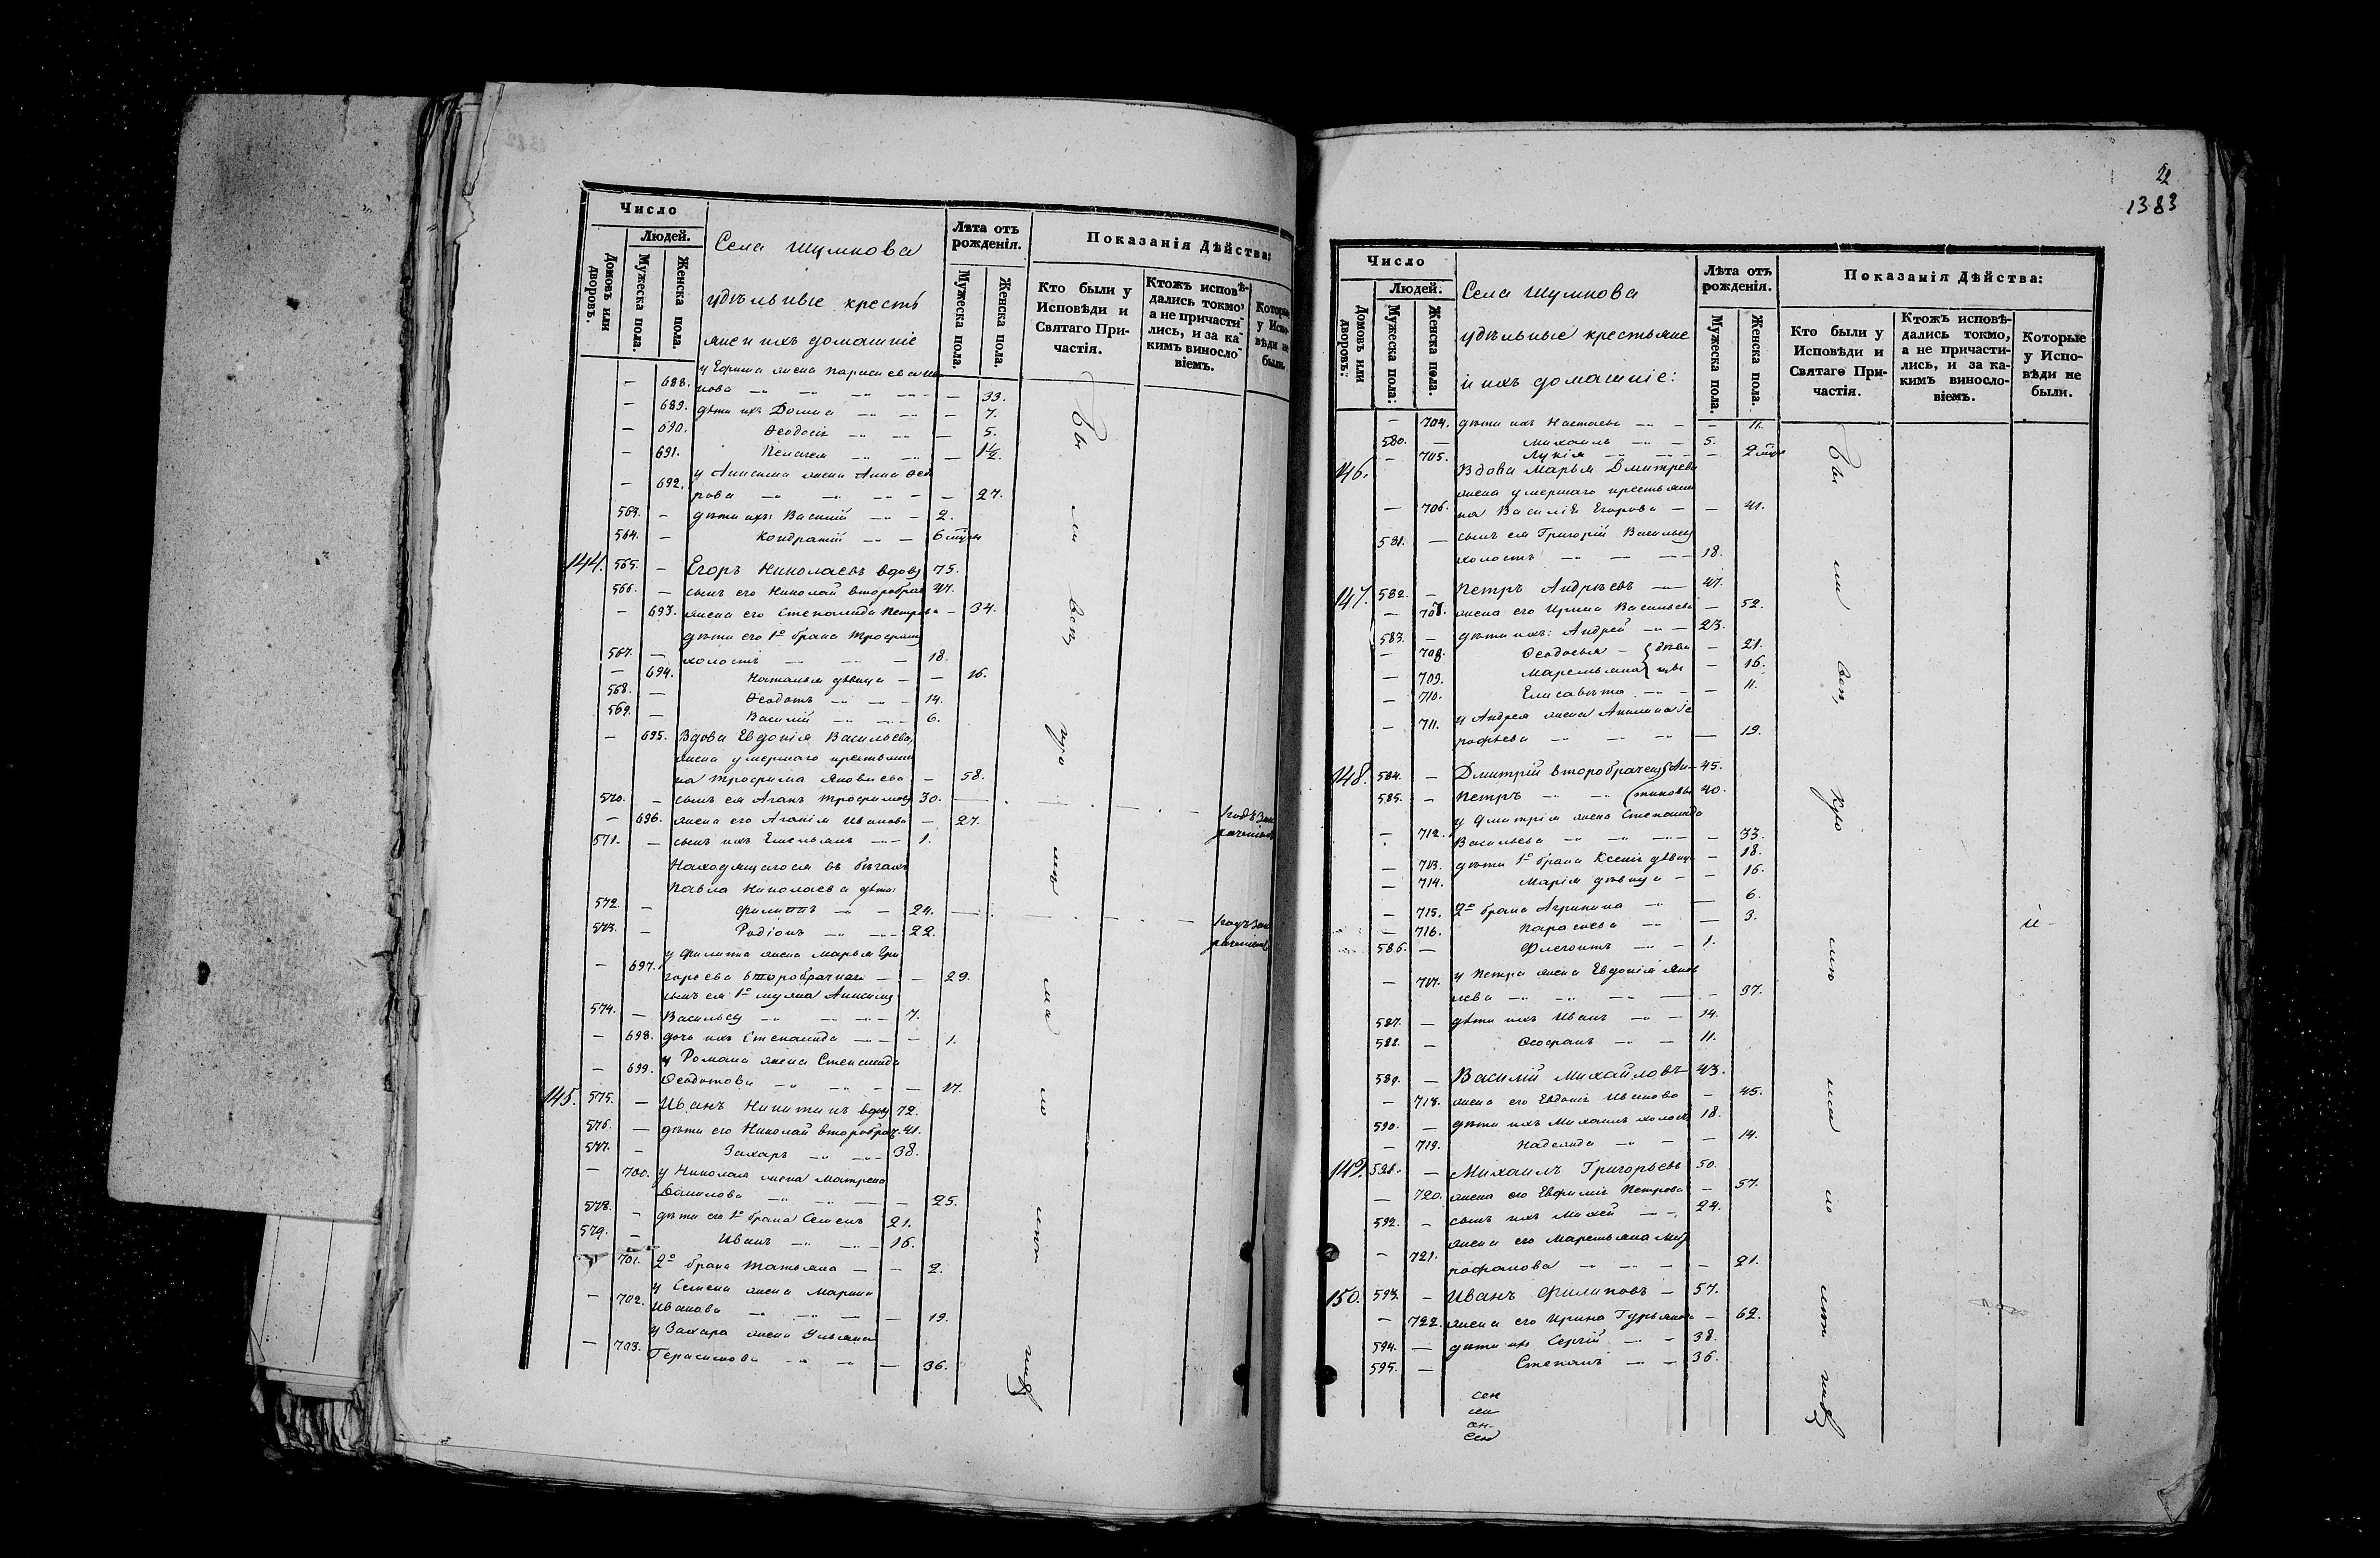 Число
Людей.
Домовъ или дворовъ.
Мужеска пола.
Женска пола.
Села Шумнова
удѣльные кресть
яне и ихъ домашніе
Лѣта отъ рожденія.
Мужеска пола.
Женска пола.
Показанія Дѣйства:
Кто были у Исповѣди и Святаго Причастія.
Ктожъ исповѣдались токмо, а не причастились, и за какимъ винословіемъ.
Которые у Исповѣди не были.
— 688. у Ефима жена Параскева
нова — 33.
— 689. дѣти ихъ Домна — 7.
— 690. Ѳеодосія — 5.
— 691. Пелагея — 1½.
— 692. у Анисима жена Анна Ѳед
рова — 27.
563. — дѣти ихъ: Василій — 2.
564. — Кондратій — 6
144. 565. — Егоръ Николаевъ вдовъ 75.
566. — сынъ его Николай второбрач 47.
— 693. жена его Степанида Петрова — 34.
дѣти его 1го брака Трофимъ
567. — холостъ — 18.
— 694. Наталья дѣвица — 16.
568. — Ѳеодотъ — 14.
569. — Василій — 6.
— 695. Вдова Евдокія Васильева,
жена умершаго крестьяни
на Трофима Яковлева — 58.
570. — сынъ ея Аганъ Трофимовъ 30.
— 696. жена его Агапія Иванова — 27.
571. — сынъ ихъ Емельянъ — 1.
Находящагося въ бѣгахъ
Павла Николаева дѣти:
572. — Филиппъ — 24.
573. — Родіонъ — 22.
— 697. у Филиппа жена Марья Гри
горьева второбрачная — 29.
сынъ ея 1го мужа Анисимъ
574. — Васильевъ — 7.
— 698. дочь ихъ Степанида — 1.
— 699. у Романа жена Степанида
Ѳеодотова — 17.
145. 575. — Иванъ Никитинъ вдовъ 72.
576. — дѣти его Николай второбрач. 41.
577. — Захаръ — 38.
— 700. у Николая жена Матрена
Данилова — 25.
578. — дѣти его 1го брака Семенъ 21.
579. — Иванъ — 16.
701. 2го брака Татьяна — 2.
— 702. у Семена жена Марина
Иванова — 19.
— 703. у Захара жена Ульяна
Герасимова — 36.
22
1383
Число
Людей.
Домовъ или дворовъ.
Мужеска пола.
Женска пола.
Села Шумнова
удѣльные крестьяне
и ихъ домашніе:
Лѣта отъ рожденія.
Мужеска пола.
Женска пола.
Показанія Дѣйства:
Кто были у Исповѣди и Святаго Причастія.
Ктожъ исповѣдались токмо, а не причастились, и за какимъ винословіемъ.
Которые у Исповѣди не были.
— 704. дѣти ихъ Настасья — 11.
580. — Михаилъ — 5.
— 705. Лукія — 2
146. Вдова Марья Дмитрева
жена умершаго крестьяни
— 706. на Василія Егорова — 41.
581. — сынъ ея Григорій Васильевъ
холостъ — 18.
147. 582. — Петръ Андреевъ — 47.
— 707. жена его Ирина Васильева — 52.
583. — дѣти ихъ: Андрей — 23.
— 708. Ѳеодосья — дѣви 21.
— 709. Маремьяна цы — 16.
— 710. Елисавета — 11.
— 711. у Андрея жена Акилина
рофѣева — 19.
148. 584. — Дмитрій второбрачен 45.
585. — Петръ — 40.
— 712. у Дмитрія жена Степанида
Васильева — 33.
— 713. дѣти 1го брака Ксенія дѣвица — 18.
— 714. Марія дѣвица — 16.
— 715. 2го брака Агрипина — 6.
— 716. Параскева — 3.
586. — Флегонтъ — 1.
— 717. у Петра жена Евдокія Яков
лева — 37.
587. — дѣти ихъ Иванъ — 14.
588. — Ѳеофанъ — 11.
589. — Василій Михайловъ 43.
— 718. жена его Евдокія Иванова — 45.
590. — дѣти ихъ Михаилъ холостъ 18.
— 719. Надежда — 14.
149. 591. — Михаилъ Григорьевъ 50.
— 720. жена его Евфимія Петрова — 57.
592. — сынъ ихъ Михей — 24.
жена его Маремьяна Мит
— 721. рофанова — 21.
150. 593. — Иванъ Филиповъ — 57.
— 722. жена его Ирина Гурьянова — 62.
594. — дѣти ихъ Сергій — 38.
595. — Степанъ — 36.